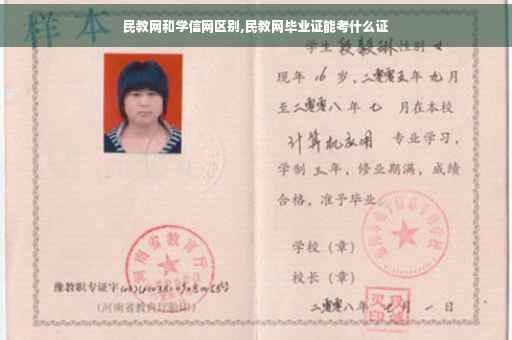 民教网和学信网区别,民教网毕业证能考什么证
样本
学生 段毅琳 性别 女
现年 16 岁,二零零五年 九月
至二零零八年 七 月在本校
计算机应用 专业学习,
学制 三 年,修业期满,成绩
合格,准予毕业
学校(章)
校长(章)
二零零八年 月 一 日
河南省教育厅
豫教职专证字
(河南省教育厅验印)